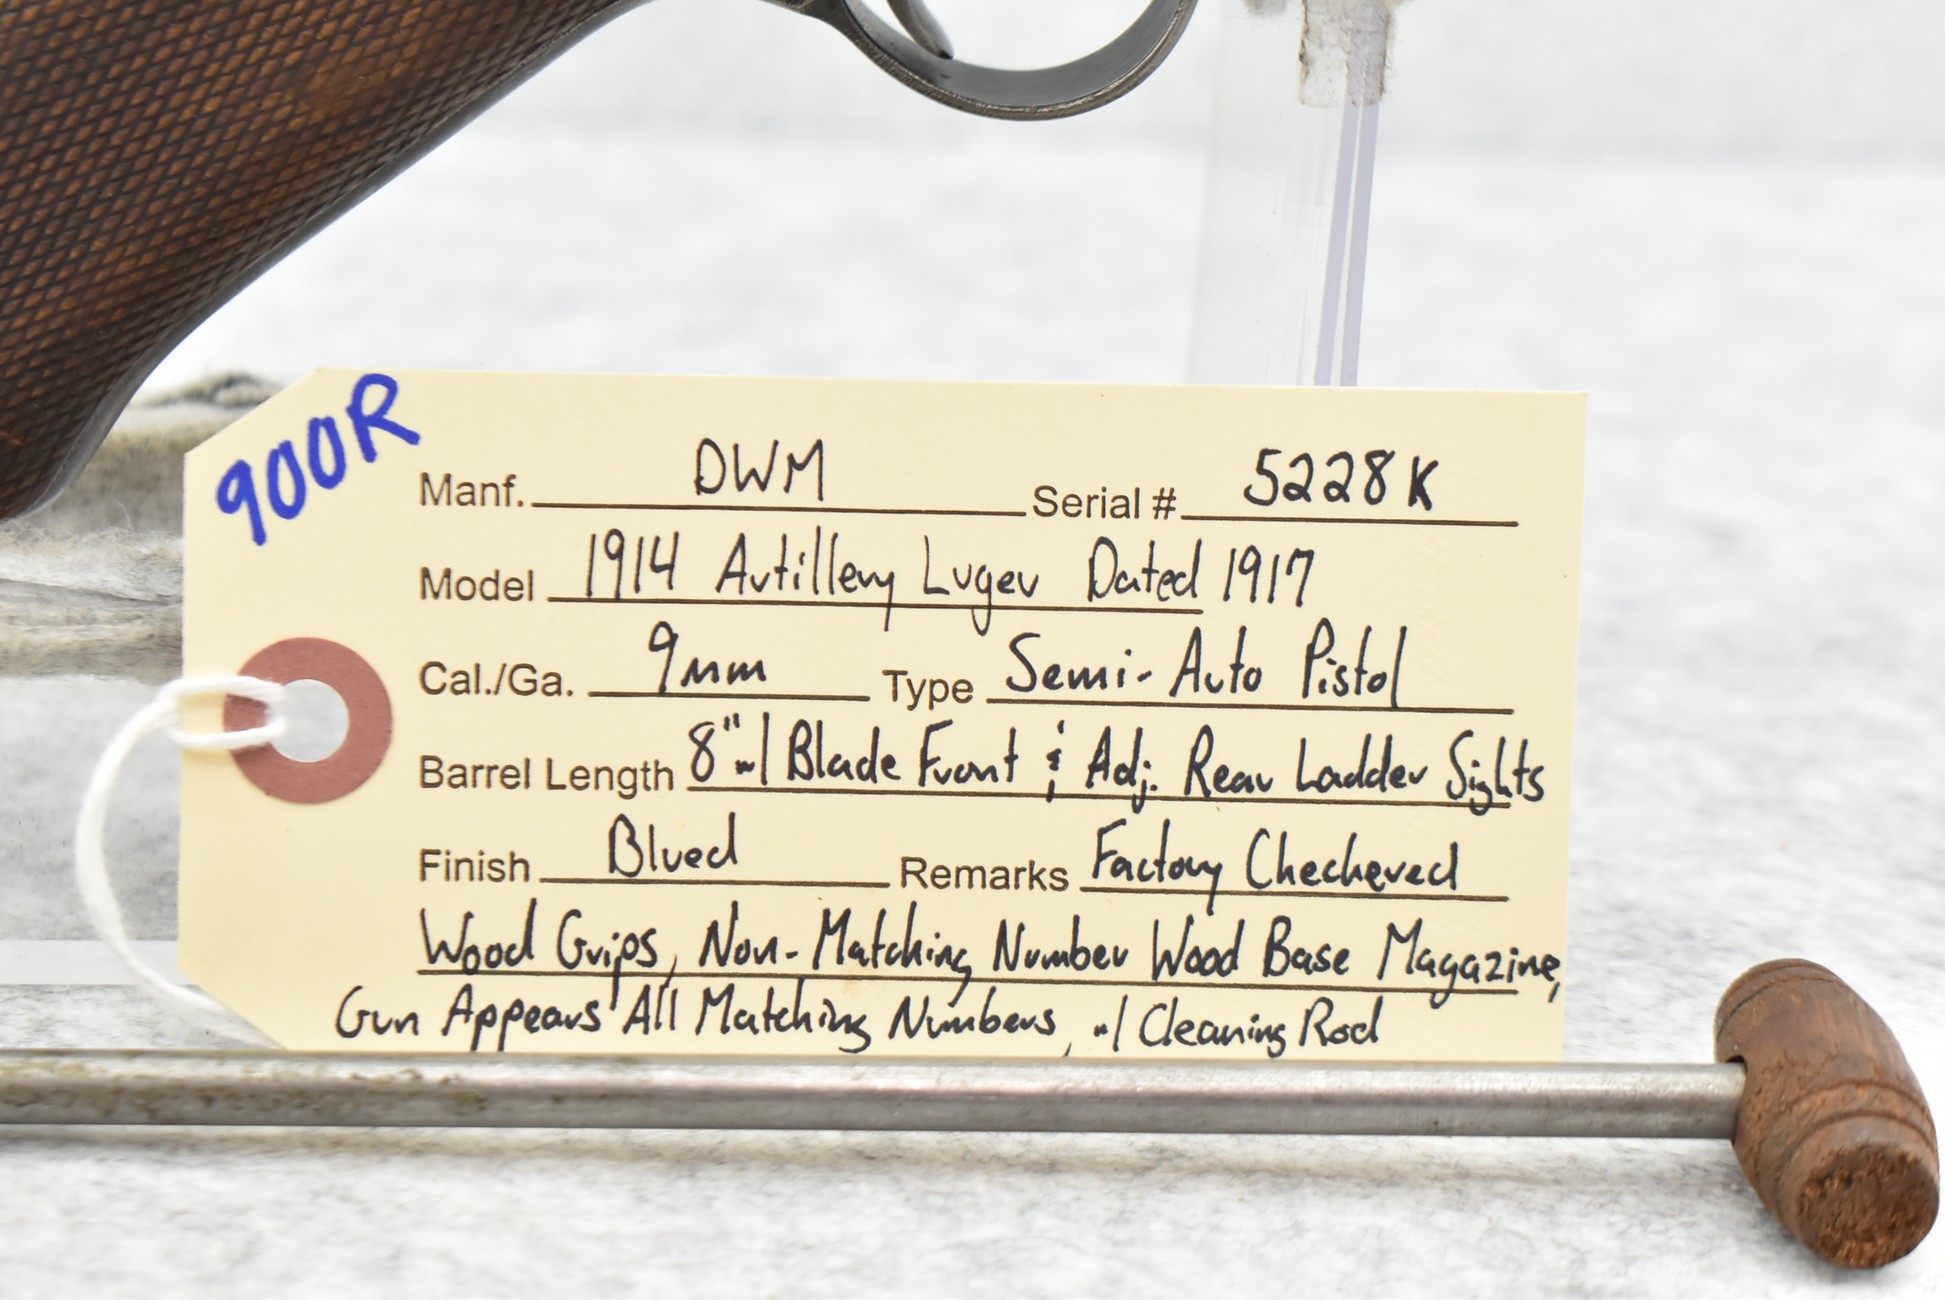 900R
Manf. DWM Serial # 5228K
Model 1914 Artillery Luger Dated 1917
Cal./Ga. 9mm Type Semi-Auto Pistol
Barrel Length 8" w/ Blade Front & Adj. Rear Ladder Sights
Finish Blued Remarks Factory Checkered
Wood Grips, Non-Matching Number Wood Base Magazine,
Gun Appears All Matching Numbers, w/ Cleaning Rod